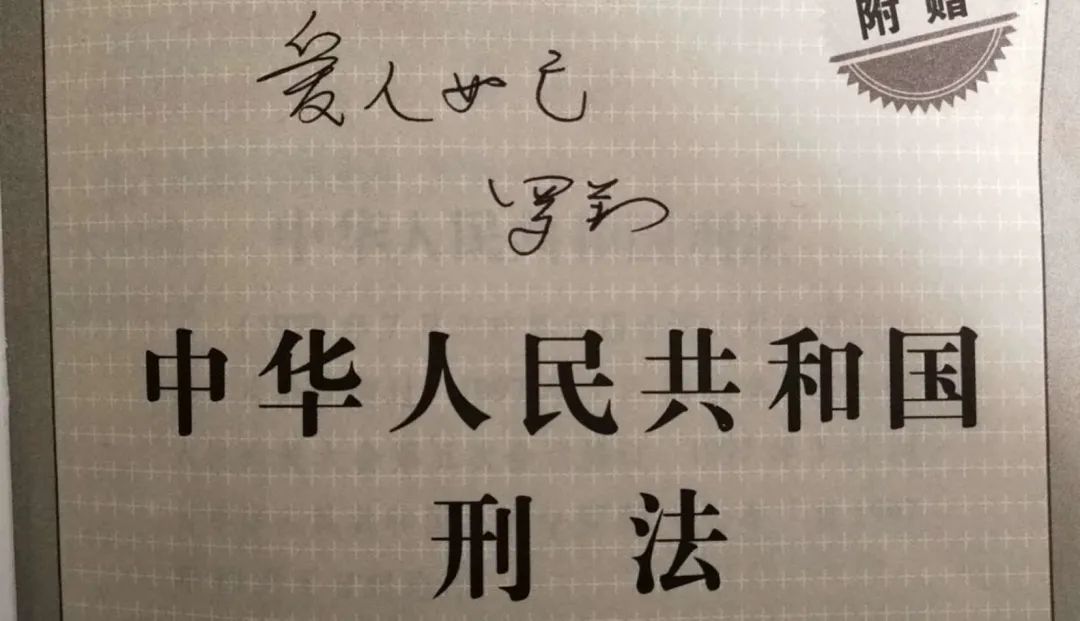 附赠
爱人如己
罗翔
中华人民共和国
刑法